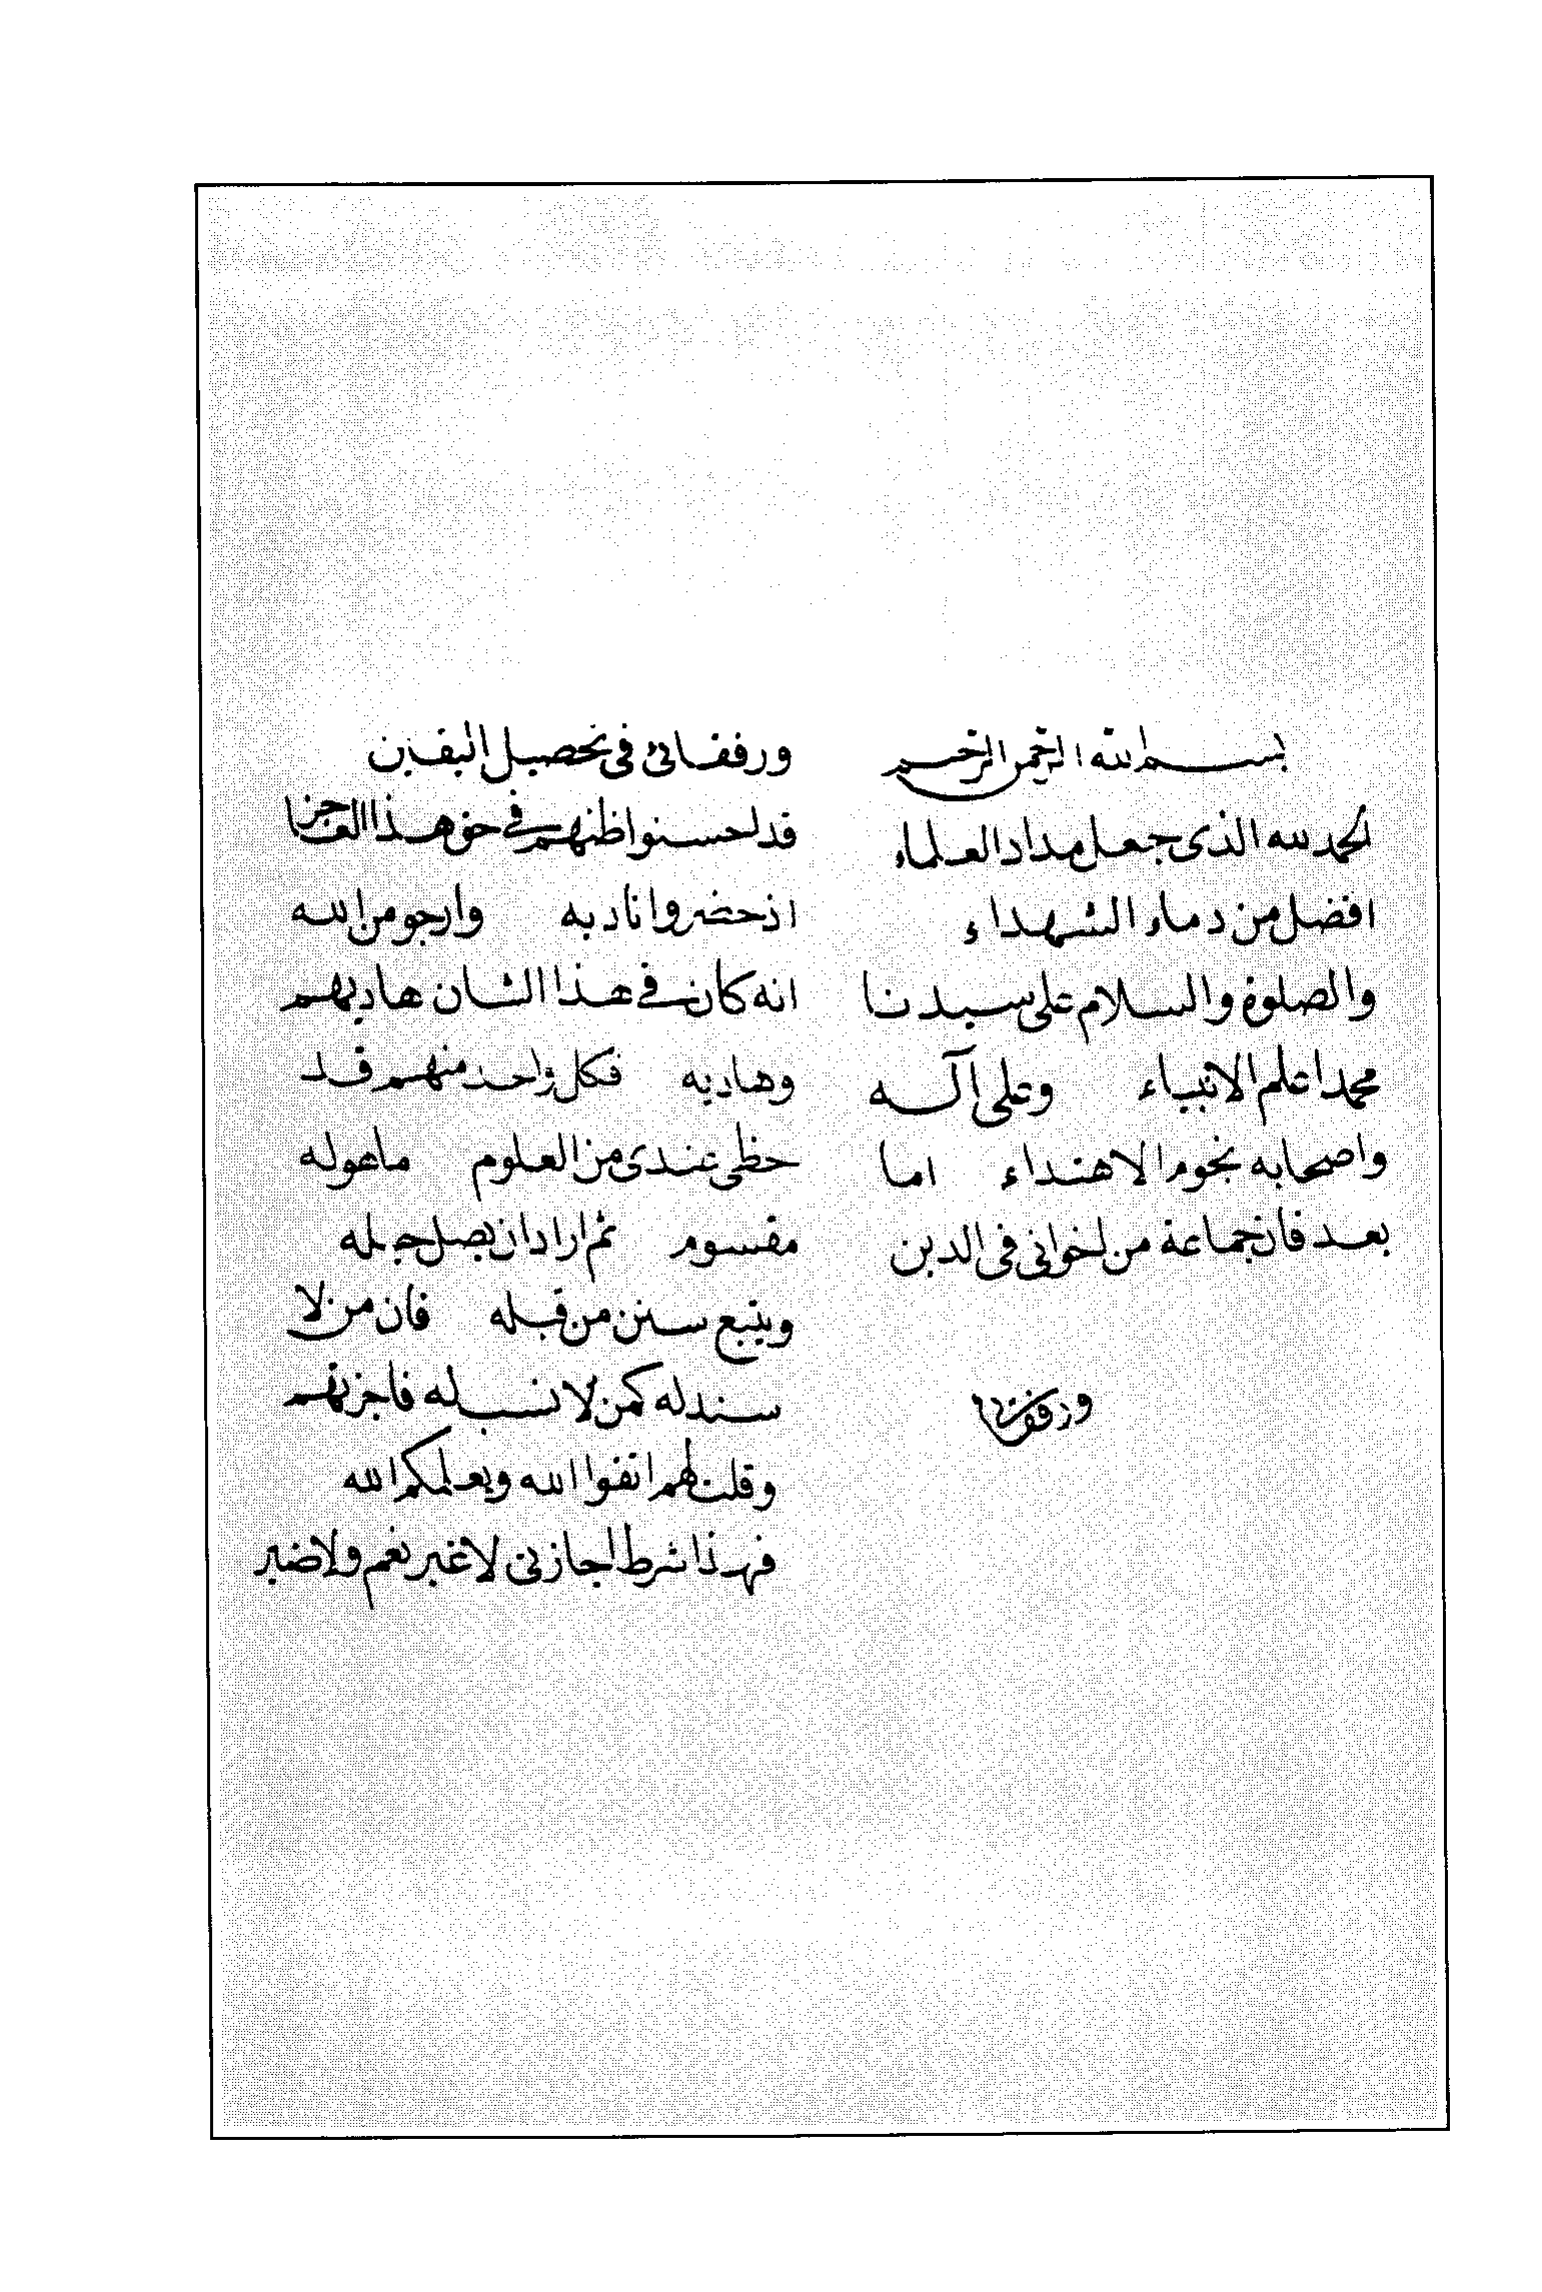 بسم الله الرحمن الرحيم
الحمد لله الذى جعل مداد العلماء
افضل من دماء الشهداء
والصلوة والسلام على سيدنا
محمد اعلم الانبياء وعلى آله
واصحابه نجوم الاهتداء اما
بعد فان جماعة من اخوانى فى الدين
ورفقائى
ورفقائى فى تحصيل اليقين
قد احسنوا ظنهم فى حق هذا العاجز
اذ حضروا نادیه وارجو من الله
انه كان فى هذا الشان هاديهم
وهاديه فكل واحد منهم قد
حظى عندى من العلوم ماهوله
مقسوم ثم اراد ان يصل حبله
ويتبع سنن من قبله فان من لا
سند له كمن لا نسب له فاجزتهم
وقلت لهم اتقوا الله ويعلمكم الله
فهذا شرط اجازتى لا غير نعم ولا ضير